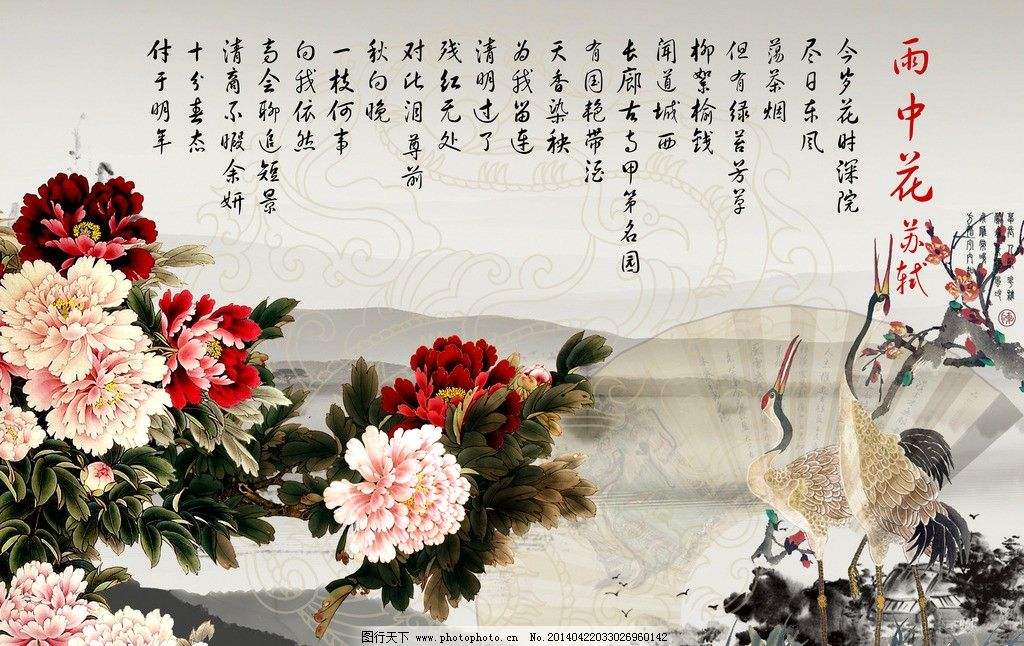 雨中花
苏轼
今岁花时深院
尽日东风
荡茶烟
但有绿苔芳草
柳絮榆钱
闻道城西
长廊古寺甲第名园
有国艳带酒
天香染袂
为我留连
清明过了
残红无处
对此泪尊前
秋向晚
一枝何事
向我依然
高会聊追短景
清商不暇余妍
十分春态
付于明年
图行天下 www.photophoto.cn No.20140422033026960142